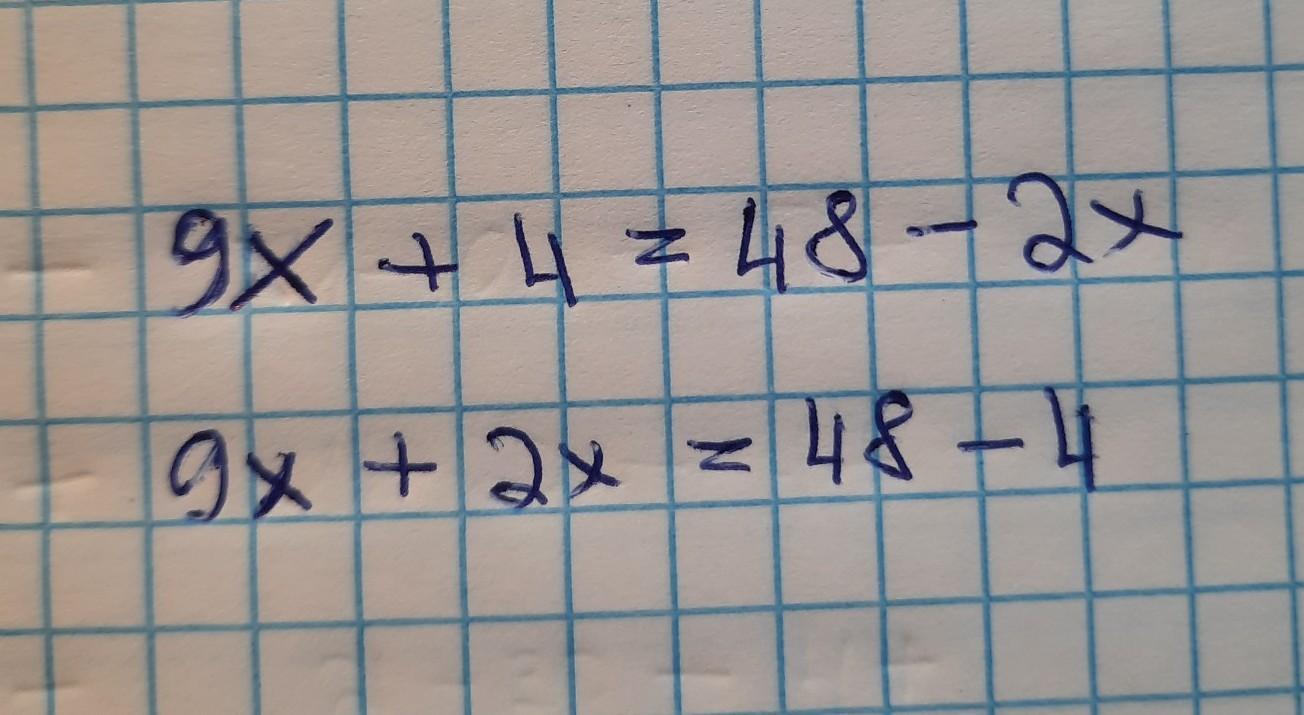 9x + 4 = 48 - 2x
9x + 2x = 48 - 4